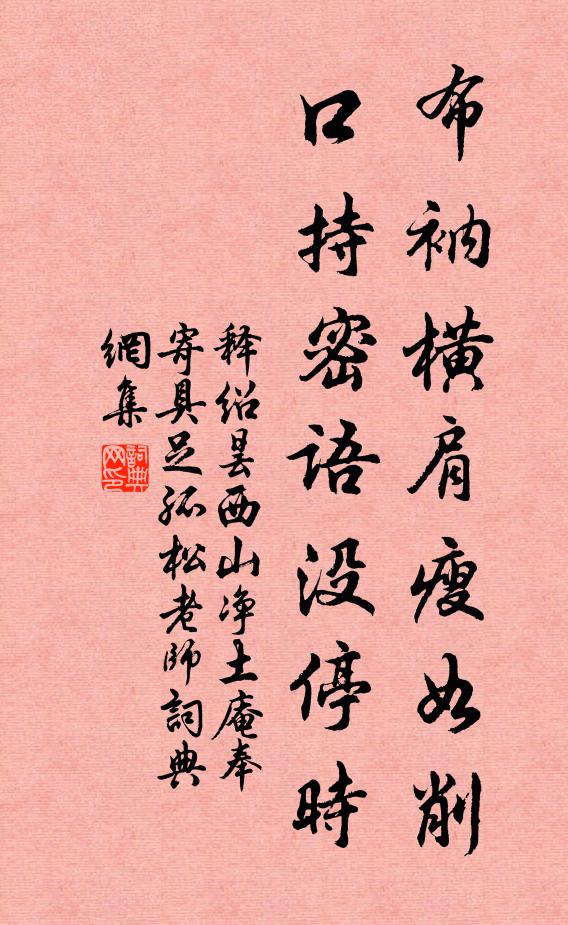 布衲橫肩瘦如削
口持密語没停時
释绍昙西山净土庵奉
寄具足孤松老師詞典
網集
詞典網印